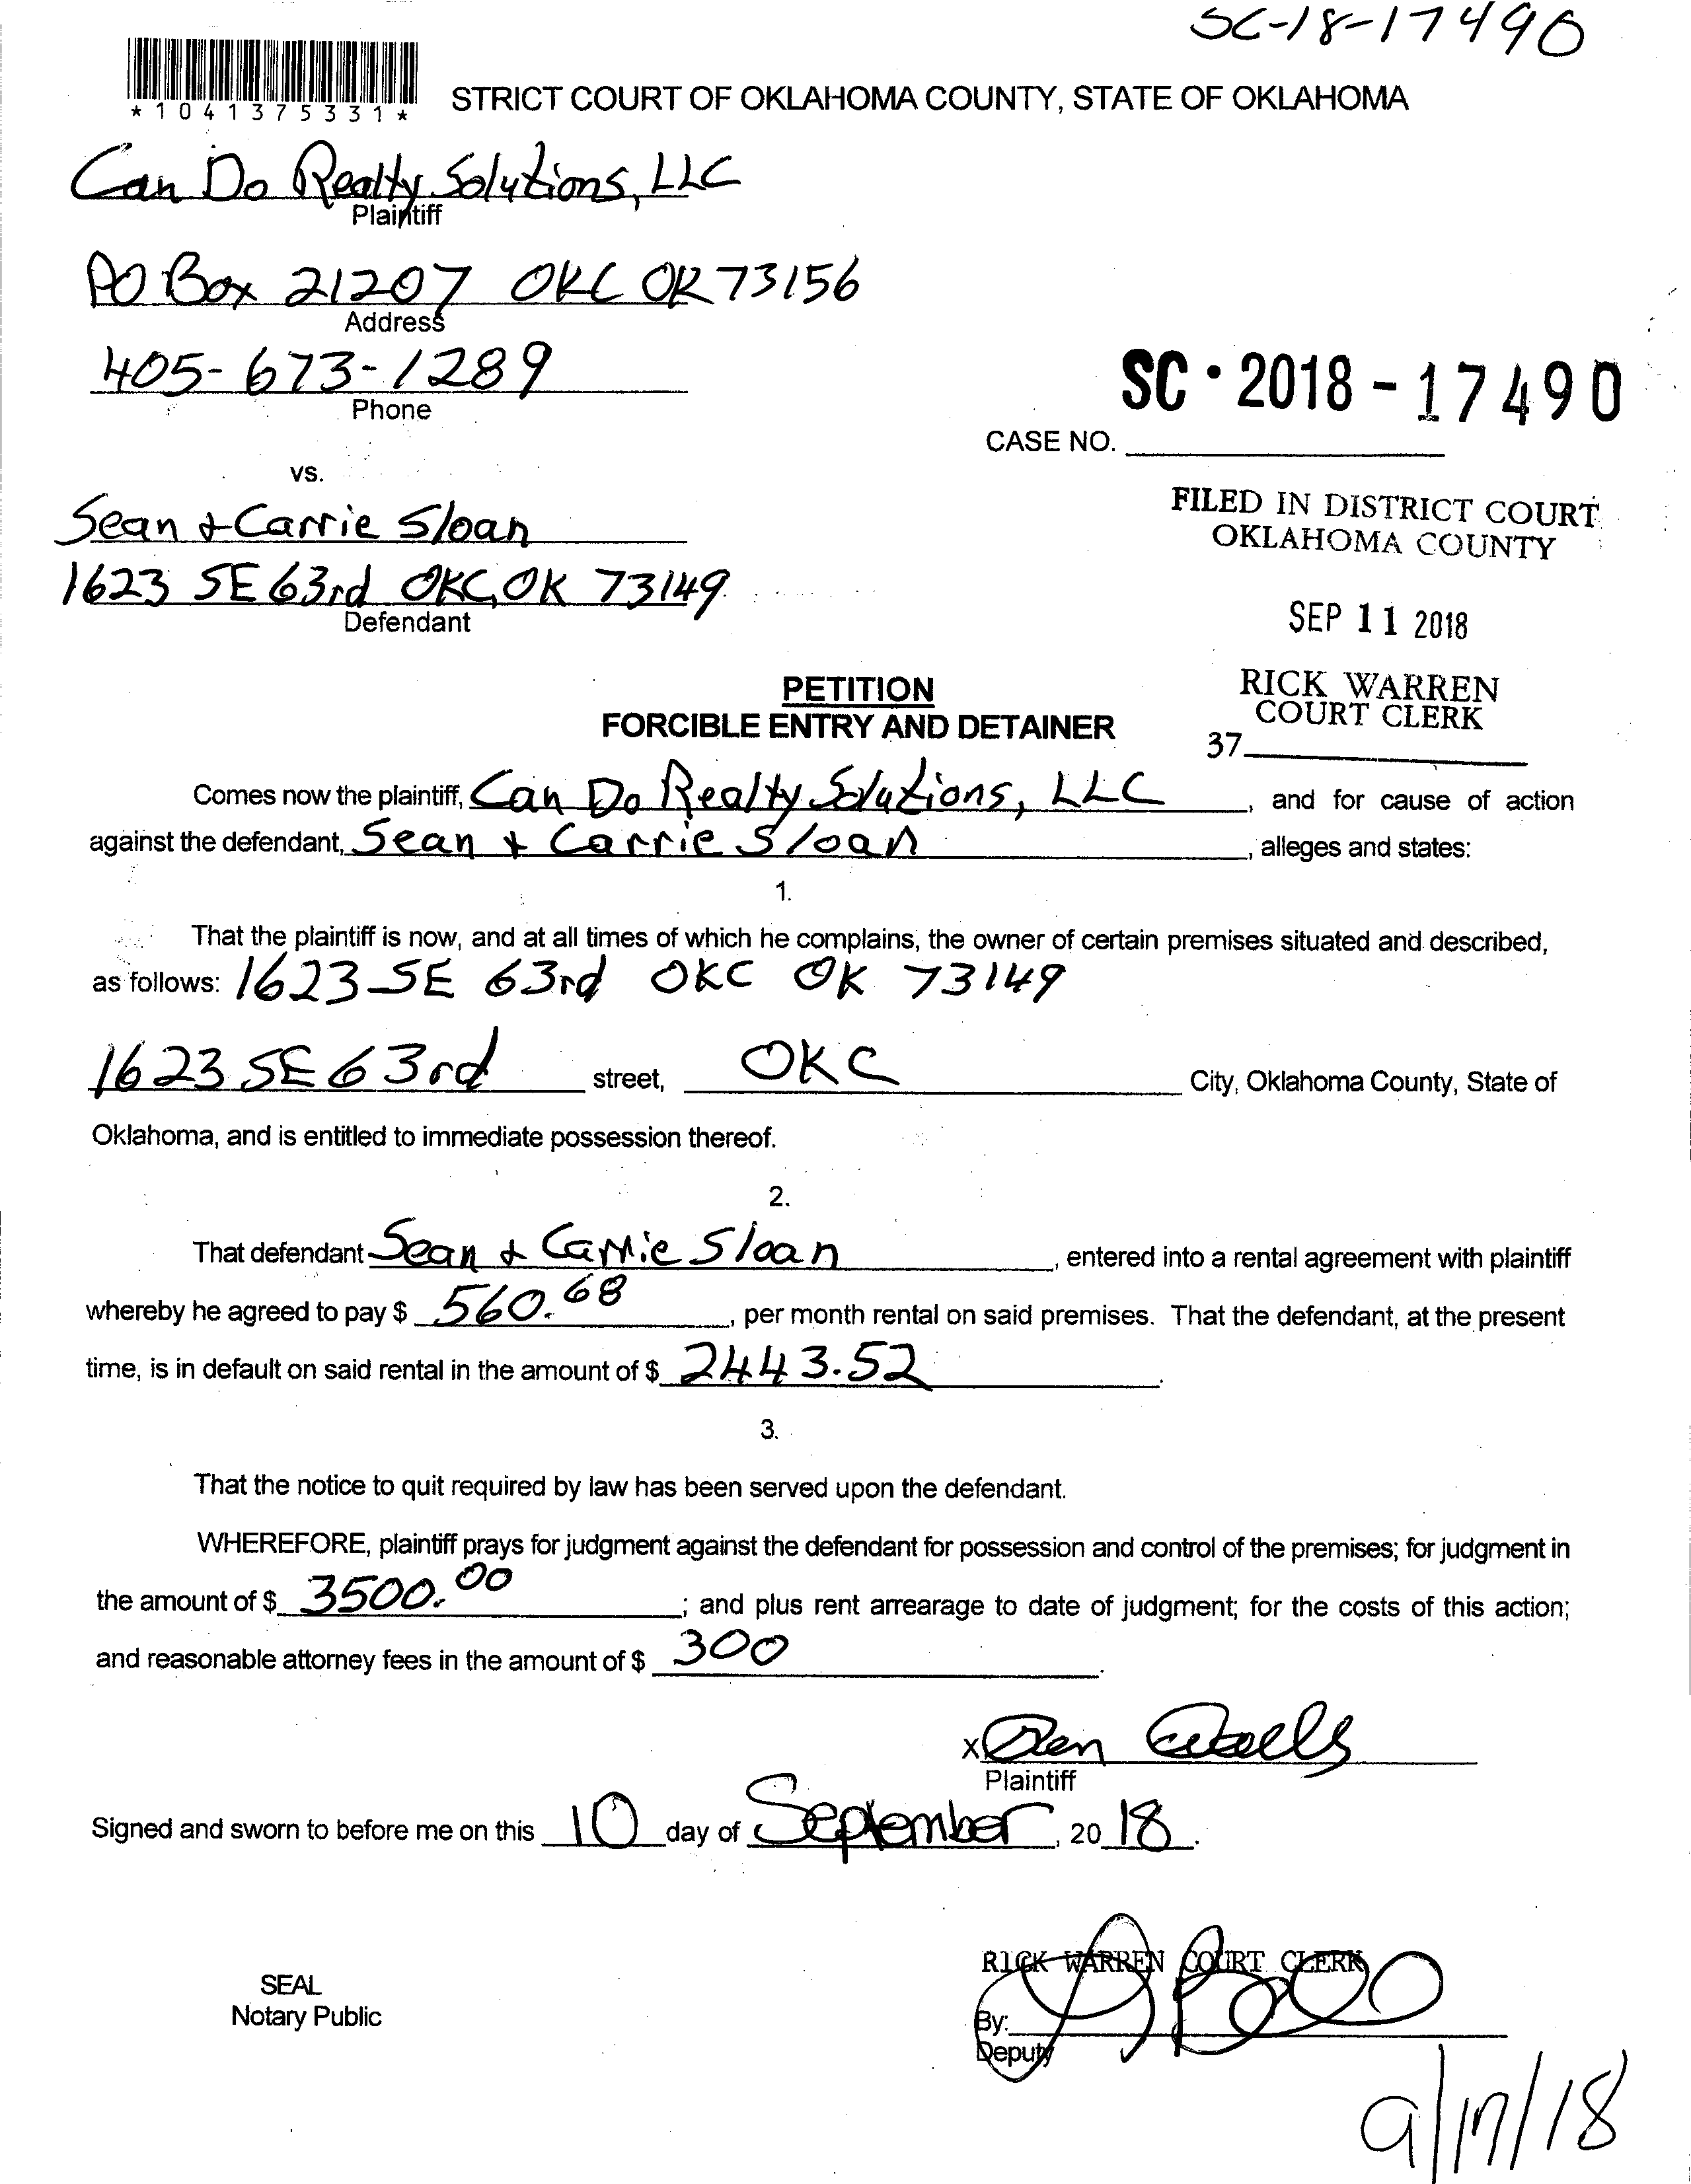 SC-18-17490
*10413753 31*
STRICT COURT OF OKLAHOMA COUNTY, STATE OF OKLAHOMA
Can Do Realty Solutions, LLC
Plaintiff
PO Box 21207 OKC OK 73156
Address
405-673-1289
Phone
SC • 2018 - 17490
CASE NO.
vs.
Sean + Carrie Sloan
1623 SE 63rd OKC, OK 73149
Defendant
FILED IN DISTRICT COURT
OKLAHOMA COUNTY
SEP 11 2018
RICK WARREN
COURT CLERK
37
PETITION
FORCIBLE ENTRY AND DETAINER
Comes now the plaintiff, Can Do Realty Solutions, LLC, and for cause of action
against the defendant, Sean + Carrie Sloan, alleges and states:
1.
That the plaintiff is now, and at all times of which he complains, the owner of certain premises situated and described,
as follows: 1623 SE 63rd OKC OK 73149
1623 SE 63rd street, OKC City, Oklahoma County, State of
Oklahoma, and is entitled to immediate possession thereof.
2.
That defendant Sean + Carrie Sloan, entered into a rental agreement with plaintiff
whereby he agreed to pay $ 560.68, per month rental on said premises. That the defendant, at the present
time, is in default on said rental in the amount of $ 2443.52.
3.
That the notice to quit required by law has been served upon the defendant.
WHEREFORE, plaintiff prays for judgment against the defendant for possession and control of the premises; for judgment in
the amount of $ 3500.00; and plus rent arrearage to date of judgment; for the costs of this action;
and reasonable attorney fees in the amount of $ 300.
X
Plaintiff
Signed and sworn to before me on this 10 day of September, 2018.
RICK WARREN COURT CLERK
SEAL
Notary Public
By:
Deputy
9/17/18